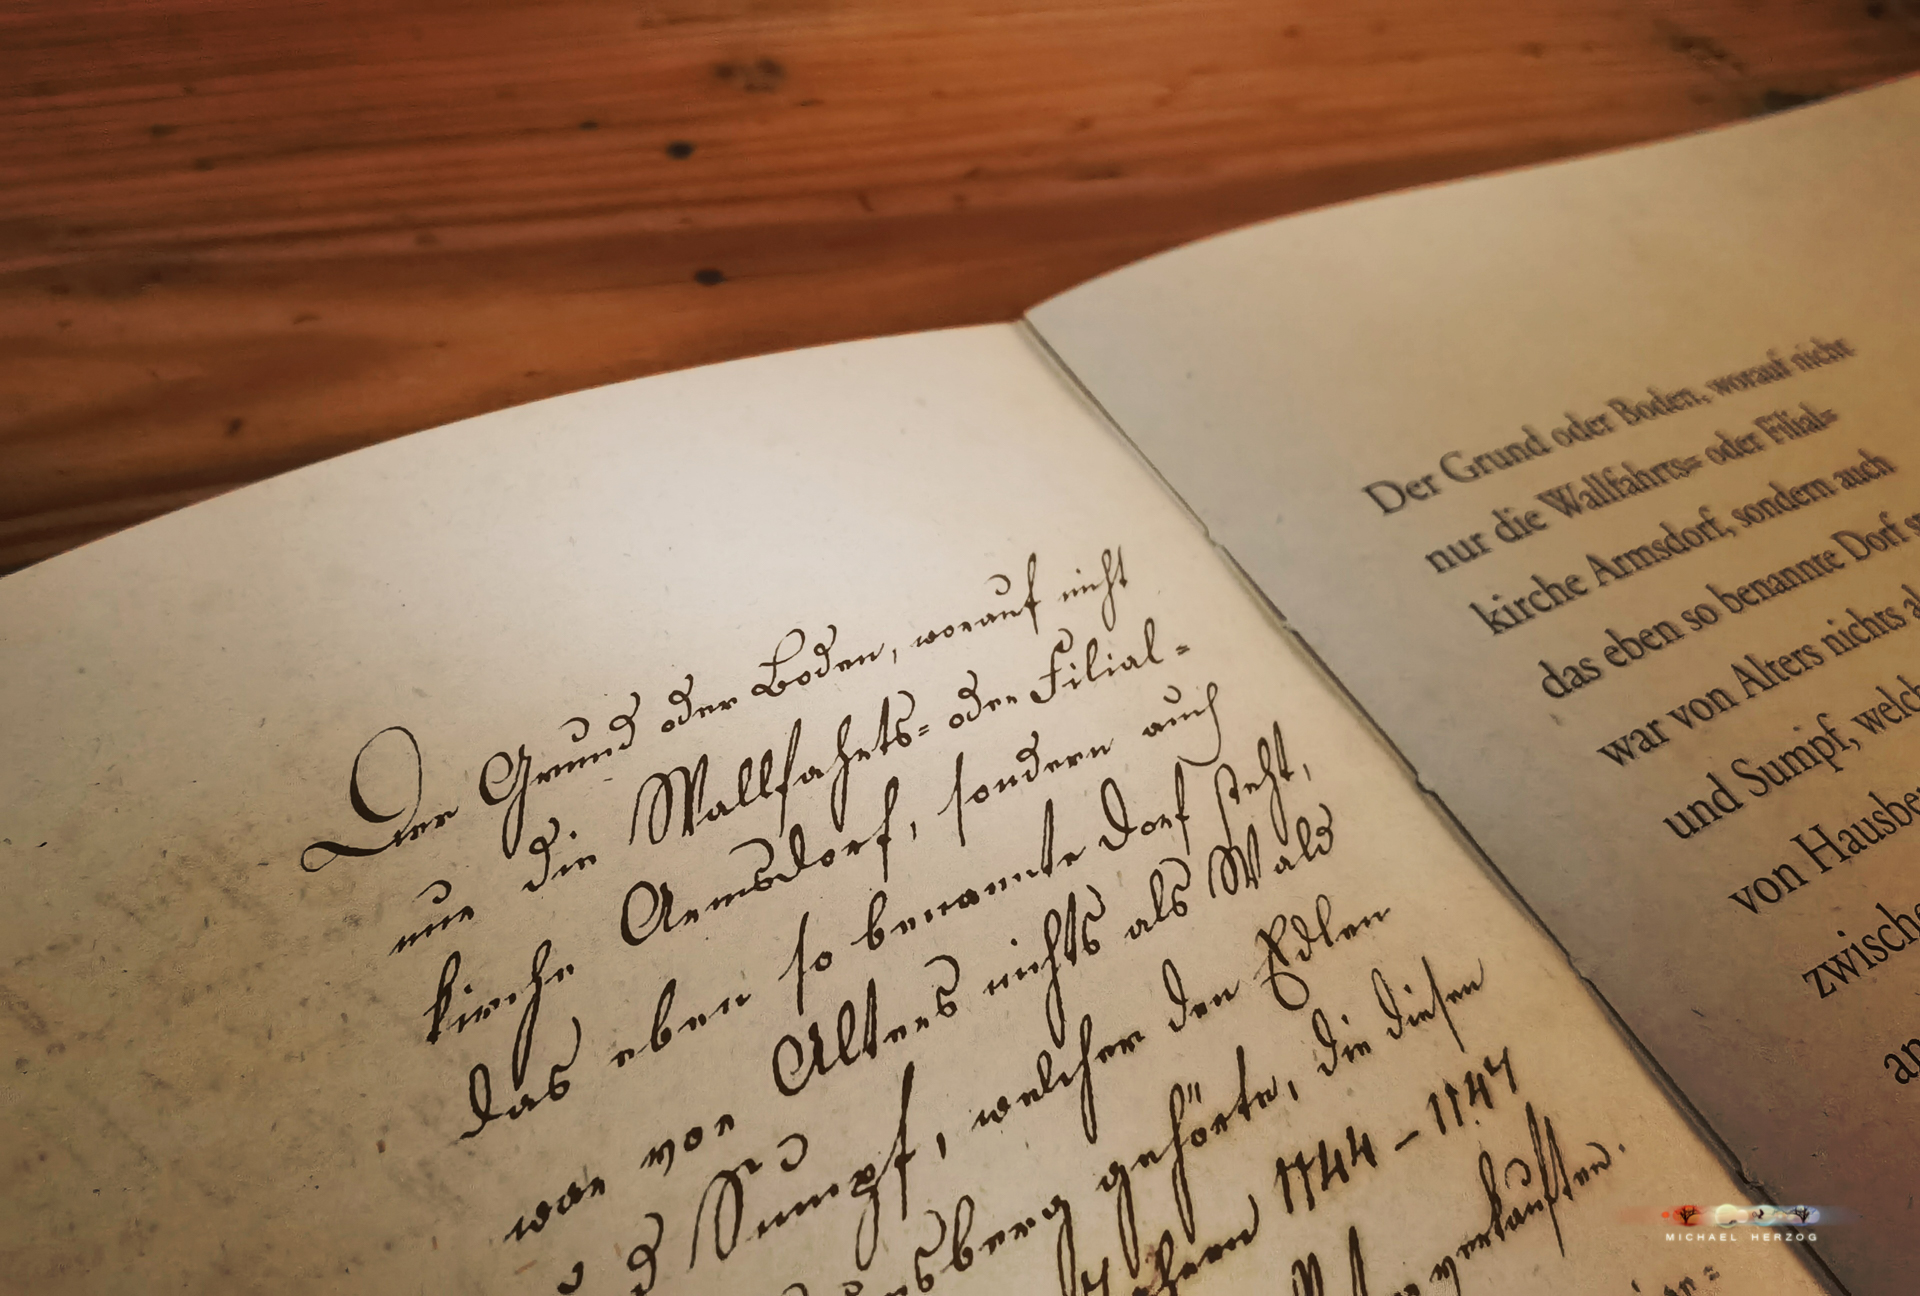 Der Grund oder Boden, worauf nicht
nur die Wallfahrts= oder Filial=
kirche Armsdorf, sondern auch
das eben so benannte Dorf steht,
war von Alters nichts als Wald
und Sumpf, welcher den Edlen
gehörte, die diesen
1144 – 1147
verkauften.
Der Grund oder Boden, worauf nicht
nur die Wallfahrts= oder Filial=
kirche Armsdorf, sondern auch
das eben so benannte Dorf
war von Alters nichts
und Sumpf, welch
von Hausbe
zwische
an
MICHAEL HERZOG